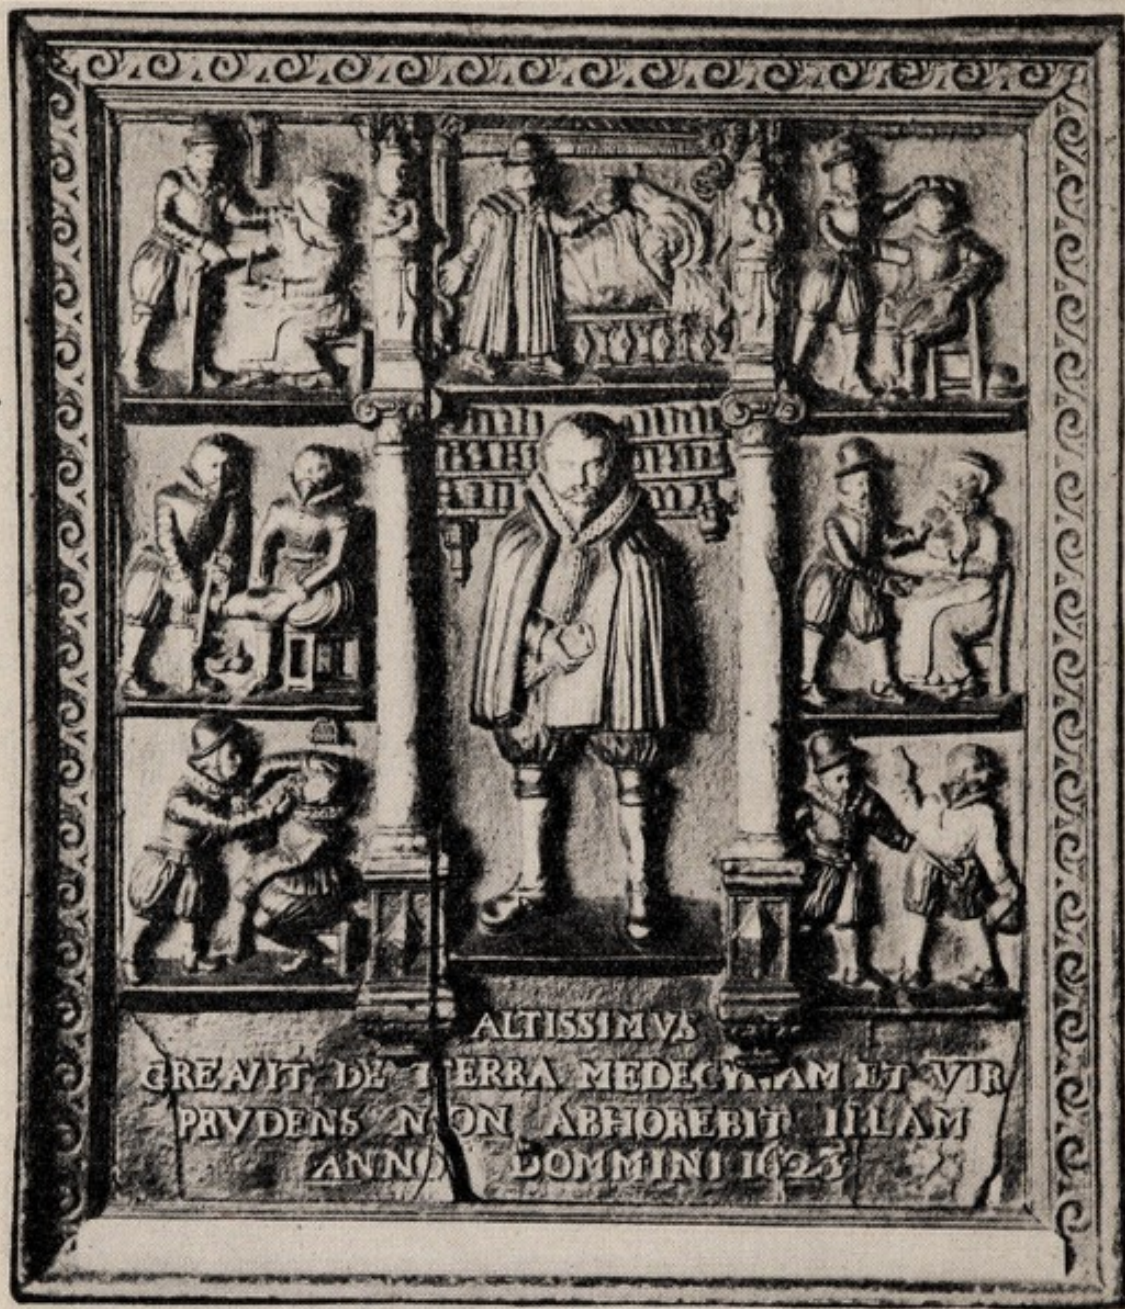 ALTISSIMVS
CREAVIT DE TERRA MEDECYNAM ET VIR
PRVDENS NON ABHOREBIT ILLAM
ANNO DOMMINI 1623